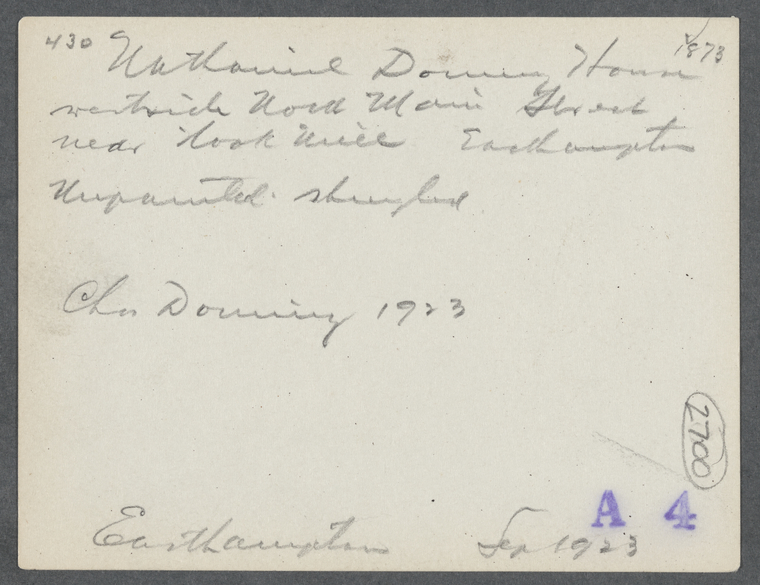 430 Nathaniel Dominy House 1873
westside North Main Street
near Hook Mill Easthampton
Unpainted shingled
Chas Dominy 1923
2700
A 4
Easthampton Sep 1923